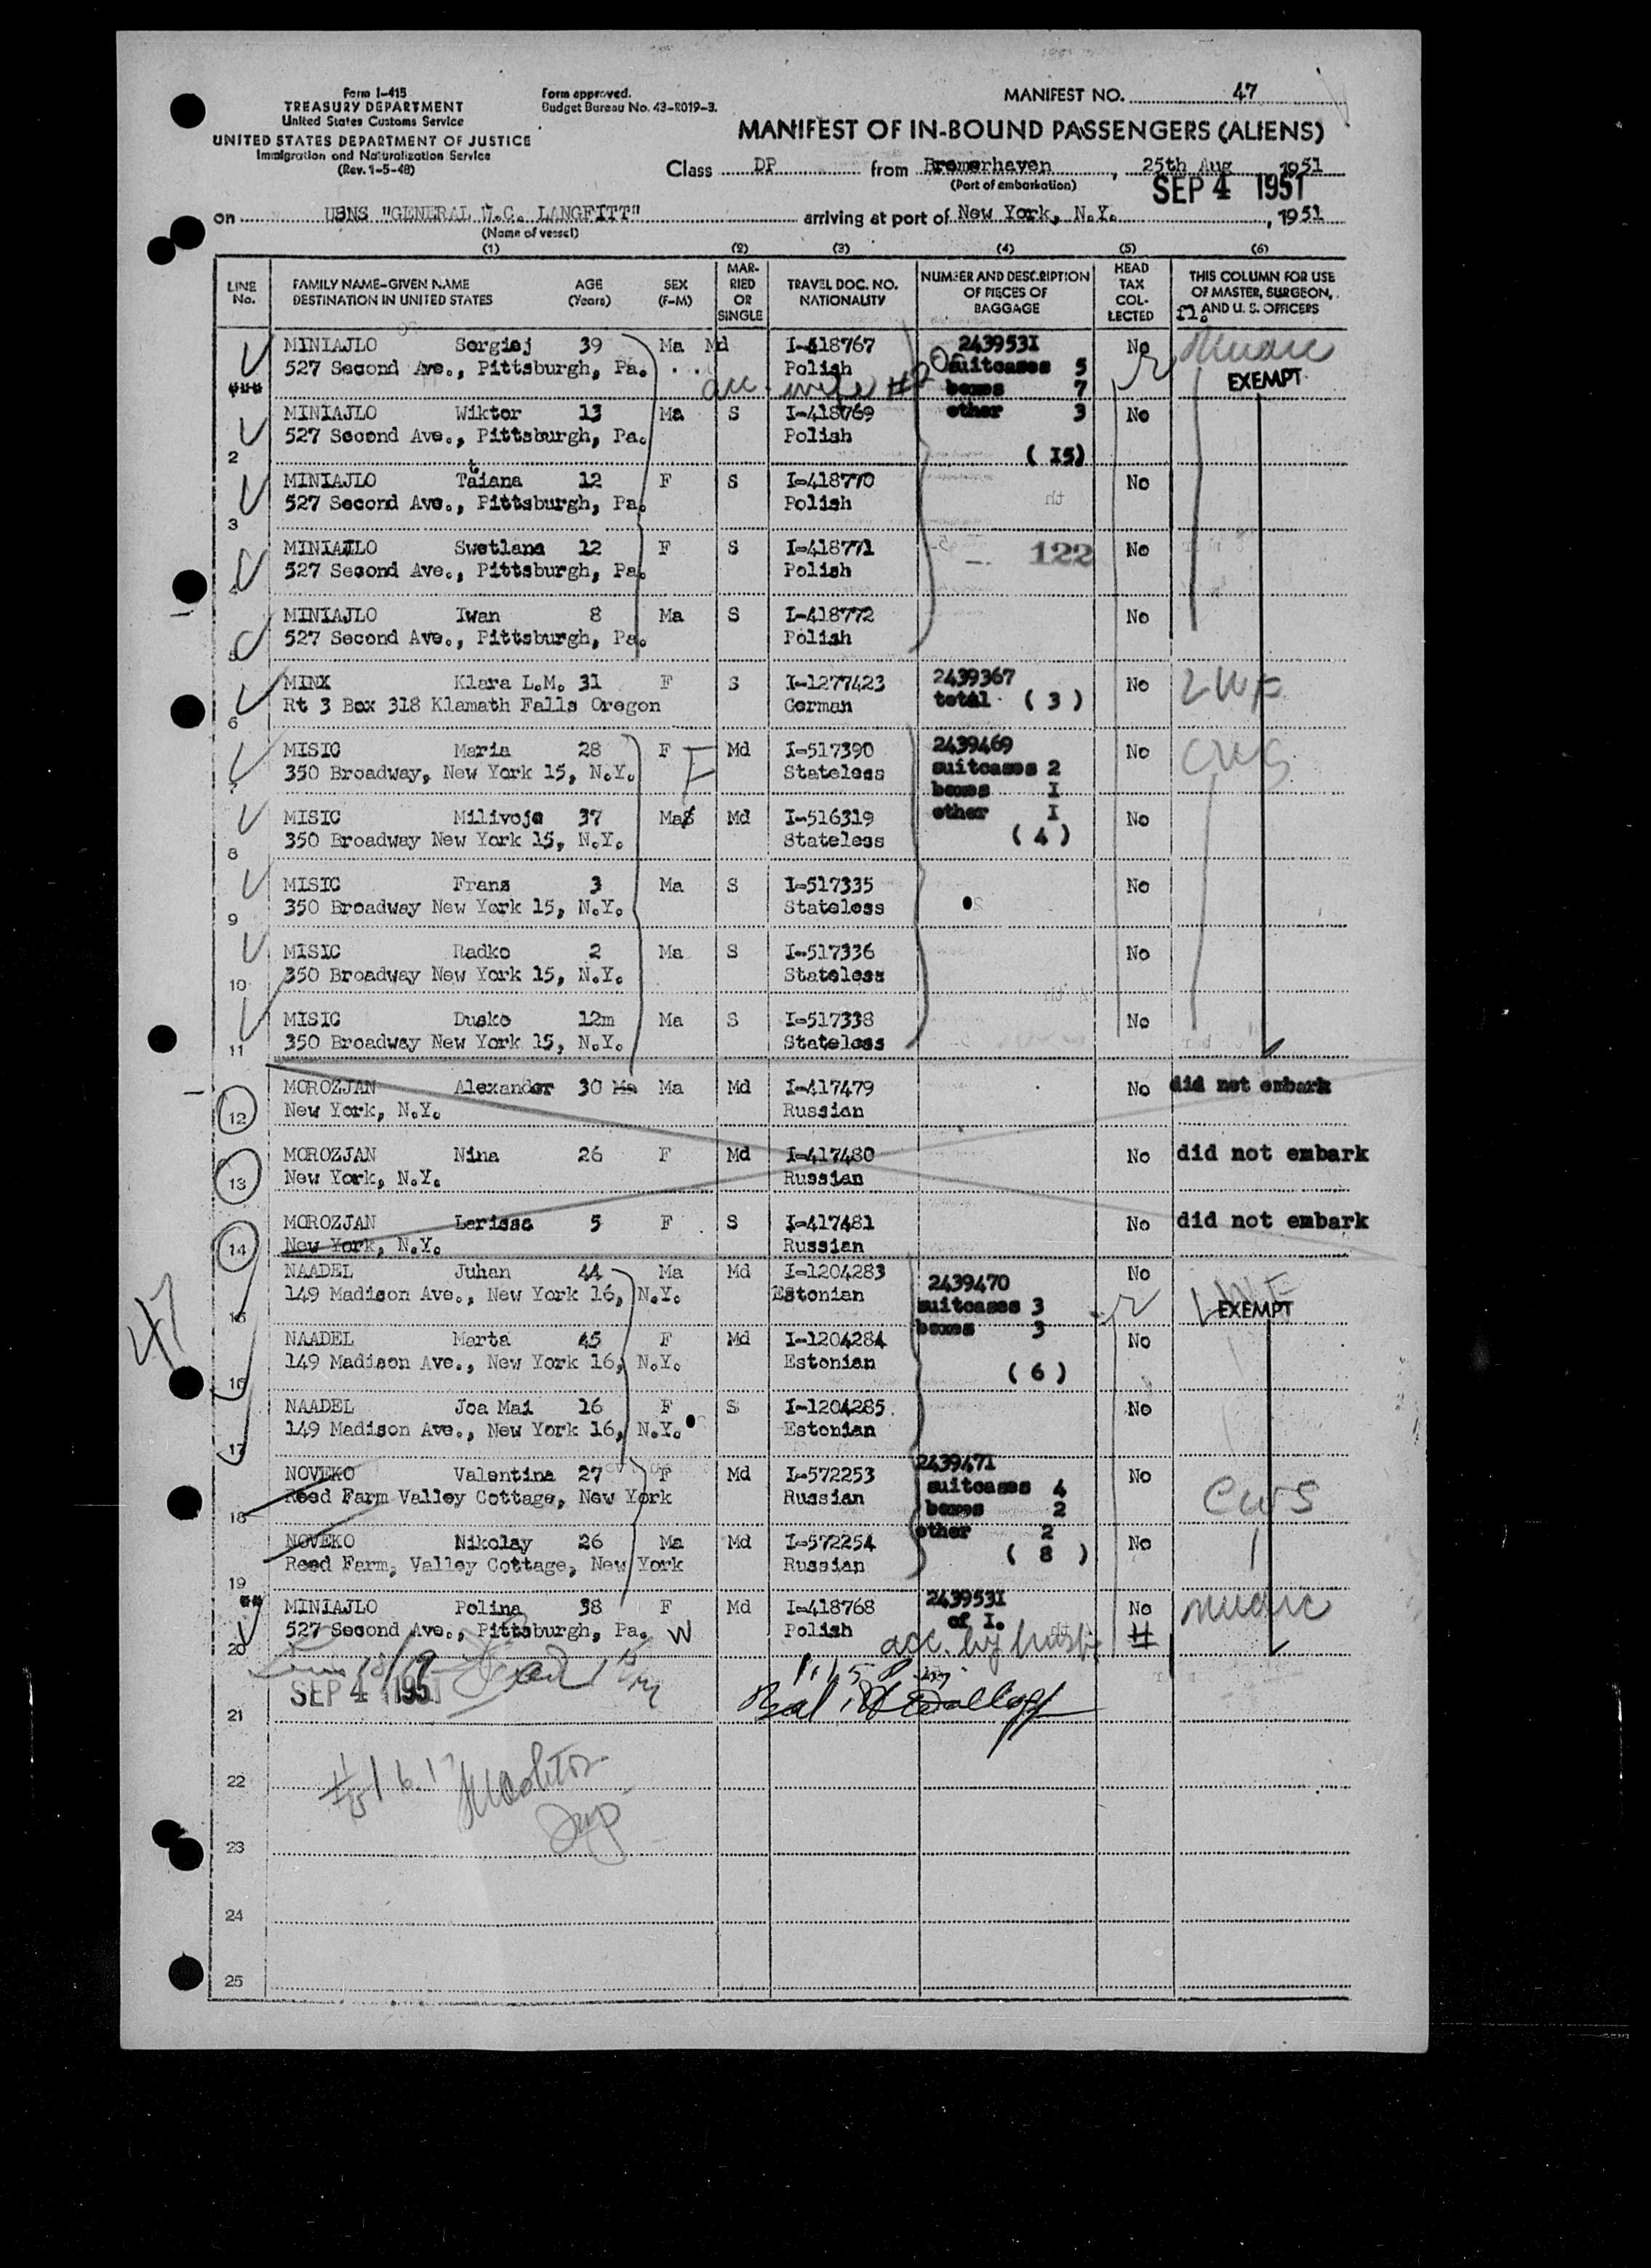 Form I-415
TREASURY DEPARTMENT
United States Customs Service
UNITED STATES DEPARTMENT OF JUSTICE
Immigration and Naturalization Service
(Rev. 1-5-48)
Form approved.
Budget Bureau No. 43-R019-3.
MANIFEST NO. 47
MANIFEST OF IN-BOUND PASSENGERS (ALIENS)
Class DP from Bremerhaven, 25th Aug 1951
(Port of embarkation)
SEP 4 1951
on USNS "GENERAL W.C. LANGFITT" arriving at port of New York, N.Y., 1951
(Name of vessel)
(1) (2) (3) (4) (5) (6)
LINE No. FAMILY NAME-GIVEN NAME DESTINATION IN UNITED STATES AGE (Years) SEX (F-M) MARRIED OR SINGLE TRAVEL DOC. NO. NATIONALITY NUMBER AND DESCRIPTION OF PIECES OF BAGGAGE HEAD TAX COLLECTED THIS COLUMN FOR USE OF MASTER, SURGEON, AND U. S. OFFICERS
MINIAJLO Sergiej 39 Ma Md I-418767 2439531 No
527 Second Ave., Pittsburgh, Pa. Polish suitcases 5 EXEMPT
*** acc. wife #20 boxes 7
MINIAJLO Wiktor 13 Ma S I-418769 other 3 No
527 Second Ave., Pittsburgh, Pa. Polish
2 (15)
MINIAJLO Taiana 12 F S I-418770 No
527 Second Ave., Pittsburgh, Pa. Polish
3
MINIAJLO Swetlana 12 F S I-418771 122 No
527 Second Ave., Pittsburgh, Pa. Polish
4
MINIAJLO Iwan 8 Ma S I-418772 No
527 Second Ave., Pittsburgh, Pa. Polish
5
MINX Klara L.M. 31 F S I-1277423 2439367 No LWF
Rt 3 Box 318 Klamath Falls Oregon German total (3)
6
MISIC Maria 28 F F Md I-517390 2439469 No CWS
350 Broadway, New York 15, N.Y. Stateless suitcases 2
7 boxes I
MISIC Milivoje 37 Ma Md I-516319 other I No
350 Broadway New York 15, N.Y. Stateless (4)
8
MISIC Franz 3 Ma S I-517335 No
350 Broadway New York 15, N.Y. Stateless
9
MISIC Radko 2 Ma S I-517336 No
350 Broadway New York 15, N.Y. Stateless
10
MISIC Dusko 12m Ma S I-517338 No
350 Broadway New York 15, N.Y. Stateless
11
MOROZJAN Alexander 30 Ma Ma Md I-417479 No did not embark
New York, N.Y. Russian
12
MOROZJAN Nina 26 F Md I-417480 No did not embark
New York, N.Y. Russian
13
MOROZJAN Larissa 5 F S I-417481 No did not embark
New York, N.Y. Russian
14
NAADEL Juhan 44 Ma Md I-1204283 2439470 No LWF
149 Madison Ave., New York 16, N.Y. Estonian suitcases 3 EXEMPT
15 boxes 3
NAADEL Marta 45 F Md I-1204284 No
149 Madison Ave., New York 16, N.Y. Estonian (6)
16
NAADEL Joa Mai 16 F S I-1204285 No
149 Madison Ave., New York 16, N.Y. Estonian
17
47
NOVEKO Valentina 27 F Md I-572253 2439471 No CWS
Reed Farm Valley Cottage, New York Russian suitcases 4
18 boxes 2
NOVEKO Nikolay 26 Ma Md I-572254 other 2 No
Reed Farm, Valley Cottage, New York Russian (8)
19
** MINIAJLO Polina 38 F Md I-418768 2439531 No
527 Second Ave., Pittsburgh, Pa. W Polish of I.
20 acc. by husb #1
SEP 4 1951
21
22
23
24
25